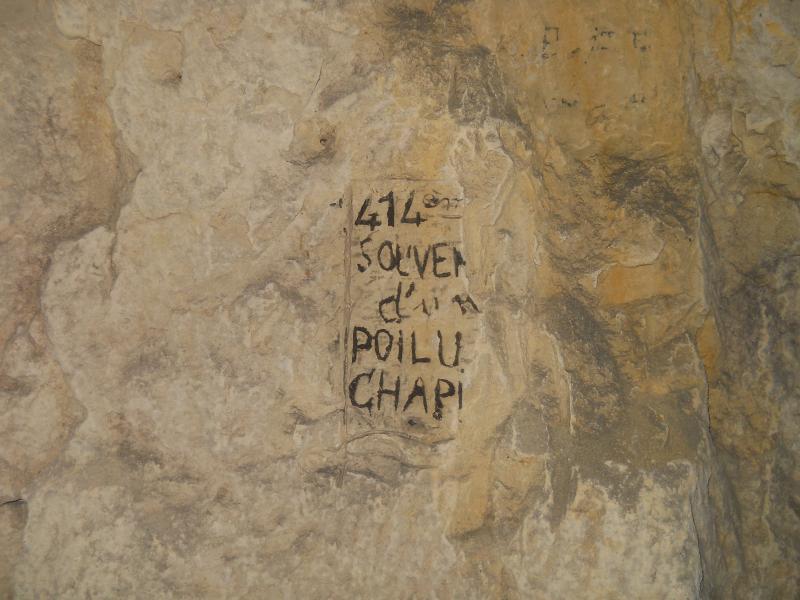 414em
SOUVEN
d'un
POILU
CHAPI